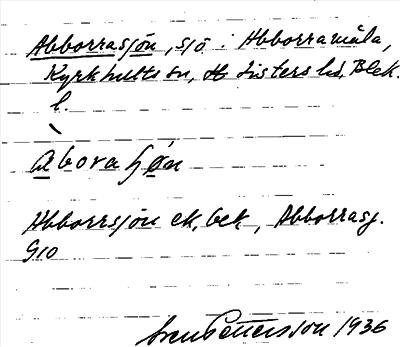 Abborrasjön, sjö i Abborramåla,
Kyrkhults sn, Listers hd, Blek.
l.
abora ʃøn
Abborrsjön ek. bek, Abborrasj.
G10
Sven Pettersson 1936